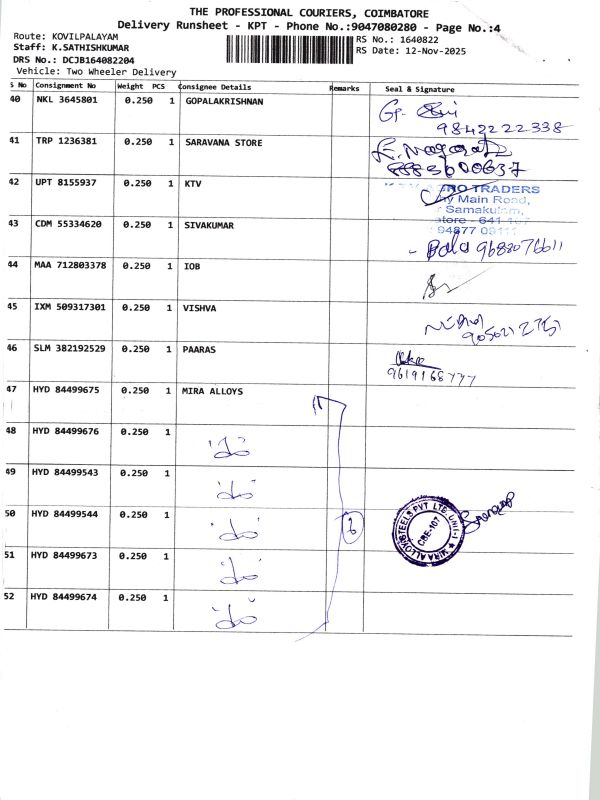 THE PROFESSIONAL COURIERS, COIMBATORE
Delivery Runsheet - KPT - Phone No.:9047080280 - Page No.:4
Route: KOVILPALAYAM
RS No.: 1640822
Staff: K.SATHISHKUMAR
RS Date: 12-Nov-2025
DRS No.: DCJB164082204
Vehicle: Two Wheeler Delivery
S No Consignment No Weight PCS Consignee Details Remarks Seal & Signature
40 NKL 3645801 0.250 1 GOPALAKRISHNAN
9842222338
41 TRP 1236381 0.250 1 SARAVANA STORE
42 UPT 8155937 0.250 1 KTV
AGRO TRADERS
Main Road,
Samakulam,
641 107
94877 09111
43 CDM 55334620 0.250 1 SIVAKUMAR
44 MAA 712803378 0.250 1 IOB
45 IXM 509317301 0.250 1 VISHVA
46 SLM 382192529 0.250 1 PAARAS
47 HYD 84499675 0.250 1 MIRA ALLOYS
48 HYD 84499676 0.250 1
49 HYD 84499543 0.250 1
50 HYD 84499544 0.250 1
MIRA ALLOY STEELS PVT LTD UNIT-I
CBE-107
51 HYD 84499673 0.250 1
52 HYD 84499674 0.250 1